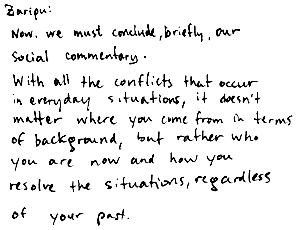 Zaripu:
Now. we must conclude, briefly, our
social commentary.
With all the conflicts that occur
in everyday situations, it doesn't
matter where you come from in terms
of background, but rather who
you are now and how you
resolve the situations, regardless
of your past.